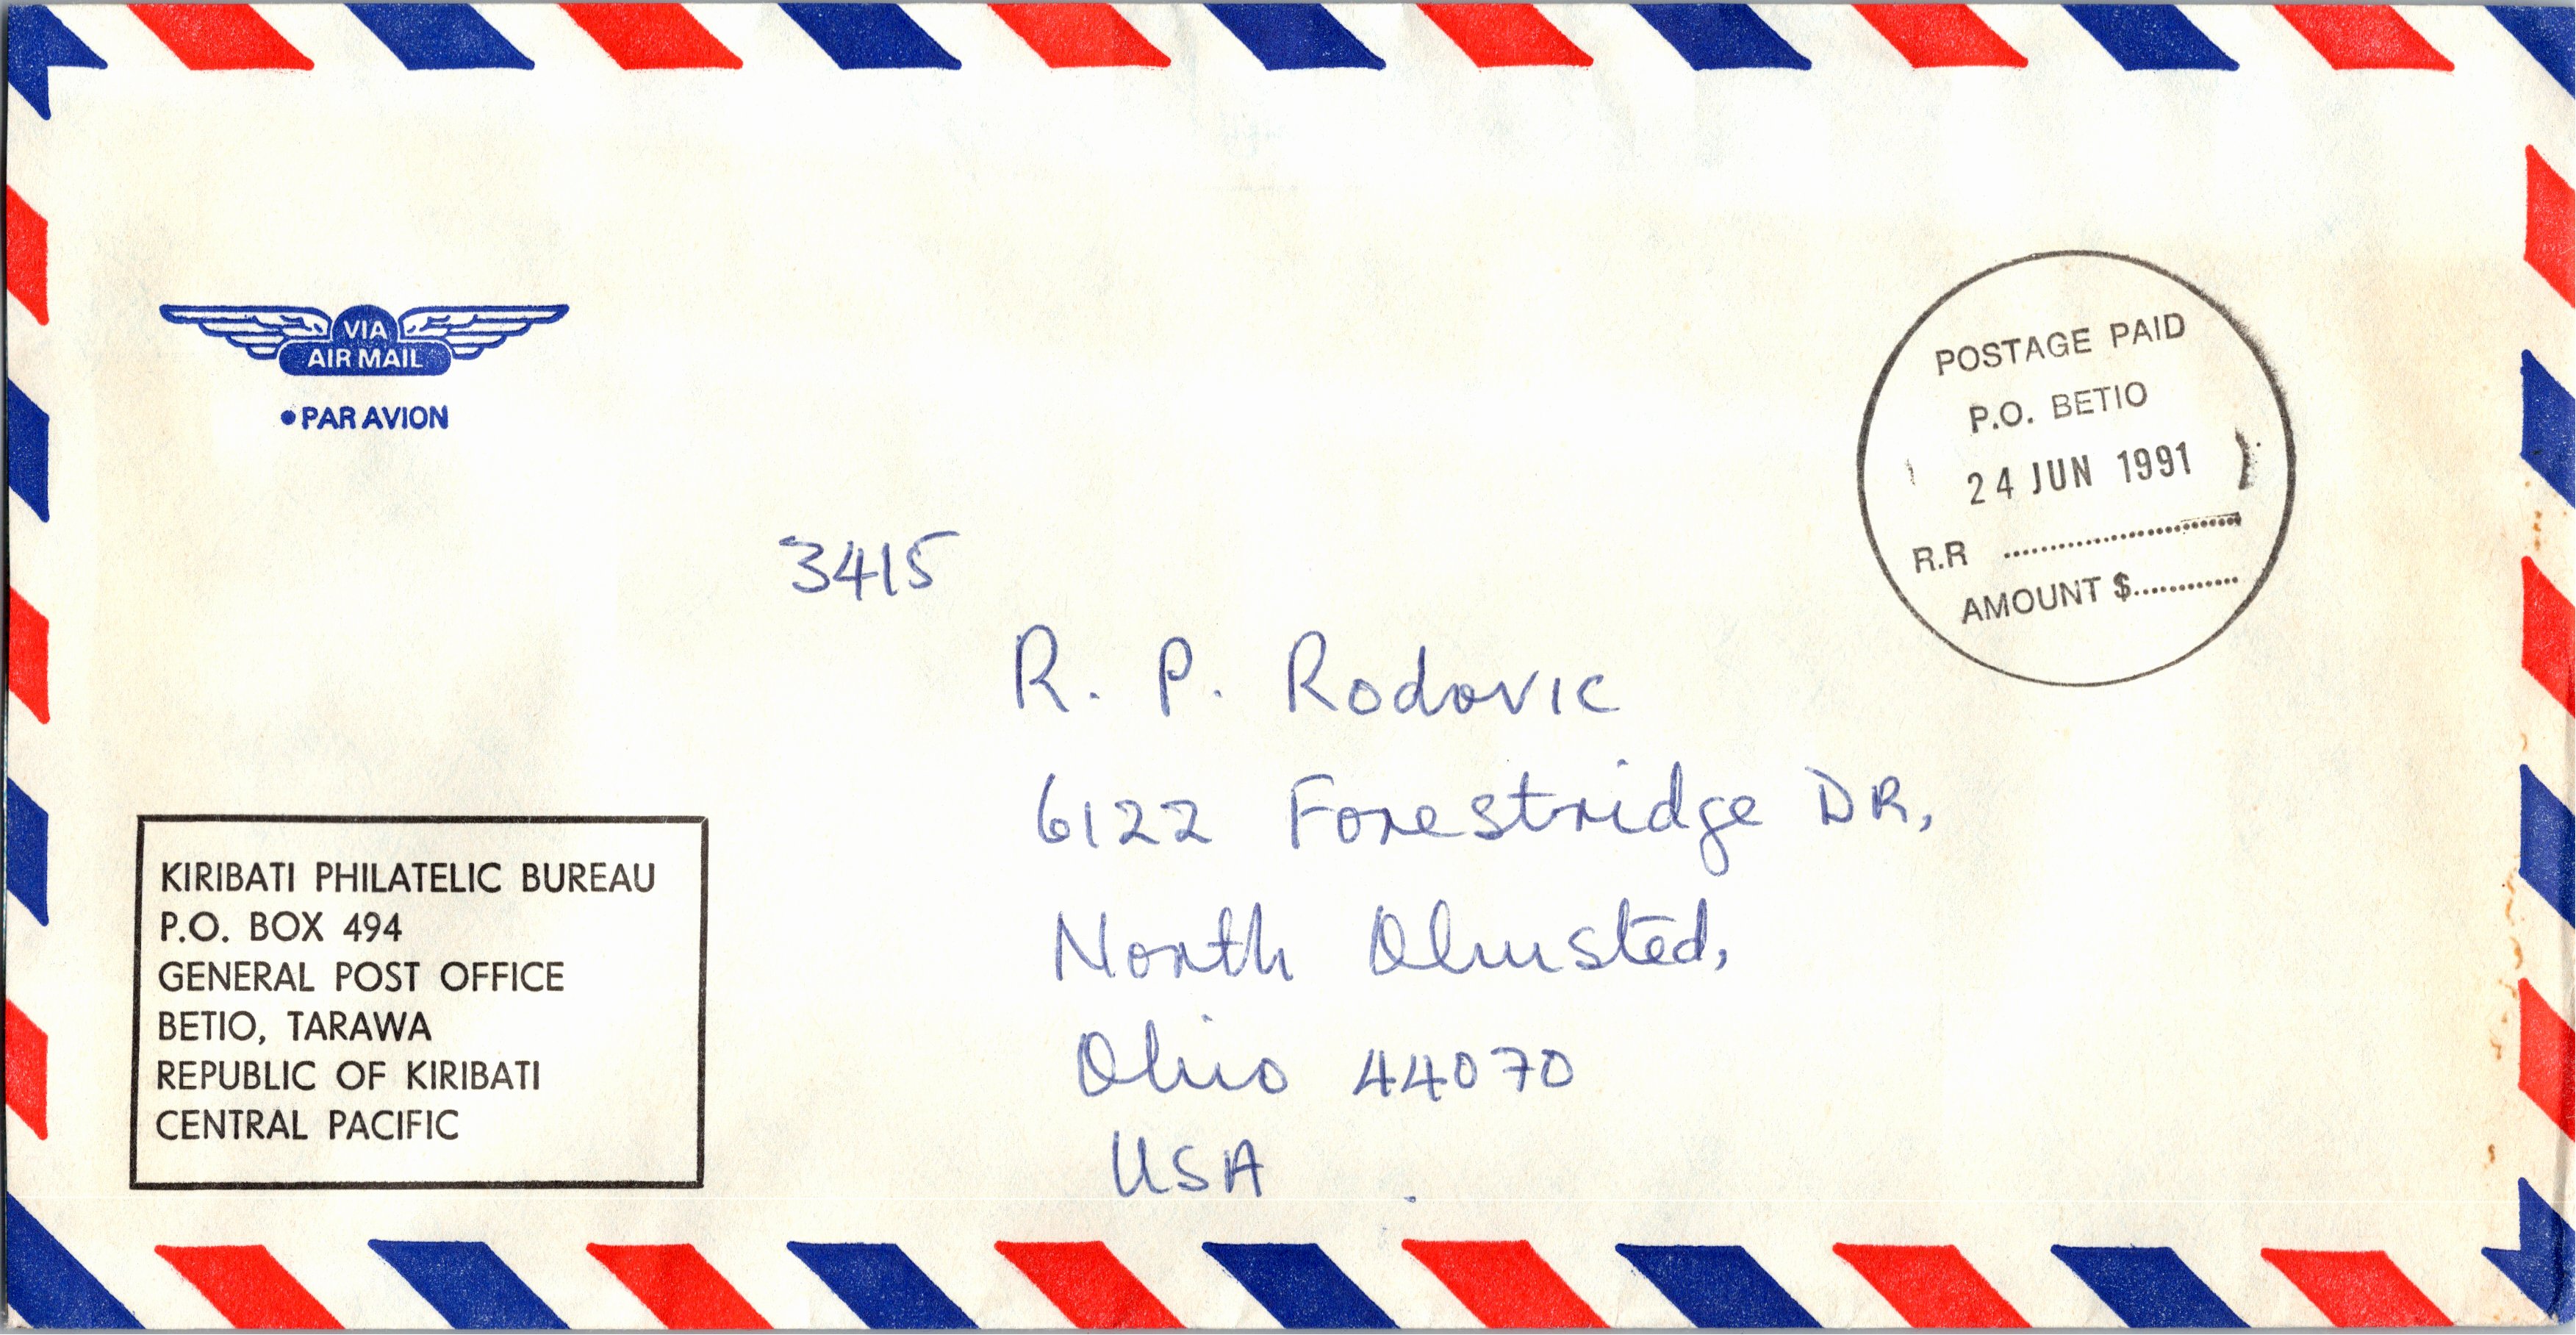 VIA
AIR MAIL
•PAR AVION
POSTAGE PAID
P.O. BETIO
24 JUN 1991
R.R ..........................
AMOUNT $............
3415
R. P. Rodovic
6122 Forestridge DR,
North Olmsted,
Ohio 44070
USA
KIRIBATI PHILATELIC BUREAU
P.O. BOX 494
GENERAL POST OFFICE
BETIO, TARAWA
REPUBLIC OF KIRIBATI
CENTRAL PACIFIC